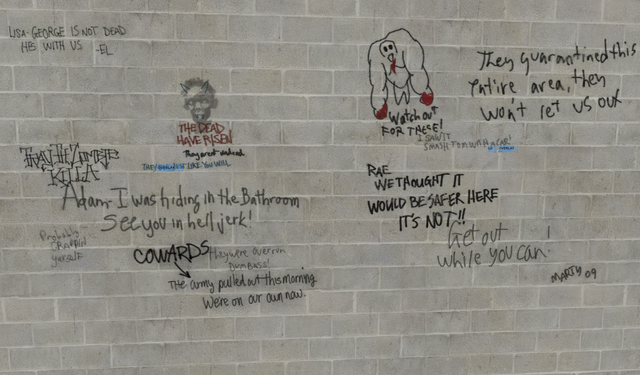 LISA- GEORGE IS NOT DEAD
HES WITH US -EL
They quarantined this
entire area, they
won't let us out
Watch out
FOR THESE!
I SAW IT
SMASH TOM WITH A CAR!
THE DEAD
HAVE RISEN!
They arent undead
THEY
LIKE YOU WILL
KILLA
Adam- I was hiding in the Bathroom
See you in hell jerk!
Probably
CRAPPIN
yourself
RAE
WE THOUGHT IT
WOULD BE SAFER HERE
IT'S NOT!!
Get out
while you can!
MARTY 09
COWARDS
They were overrun
DUMBASS!
The army pulled out this morning
We're on our own now.